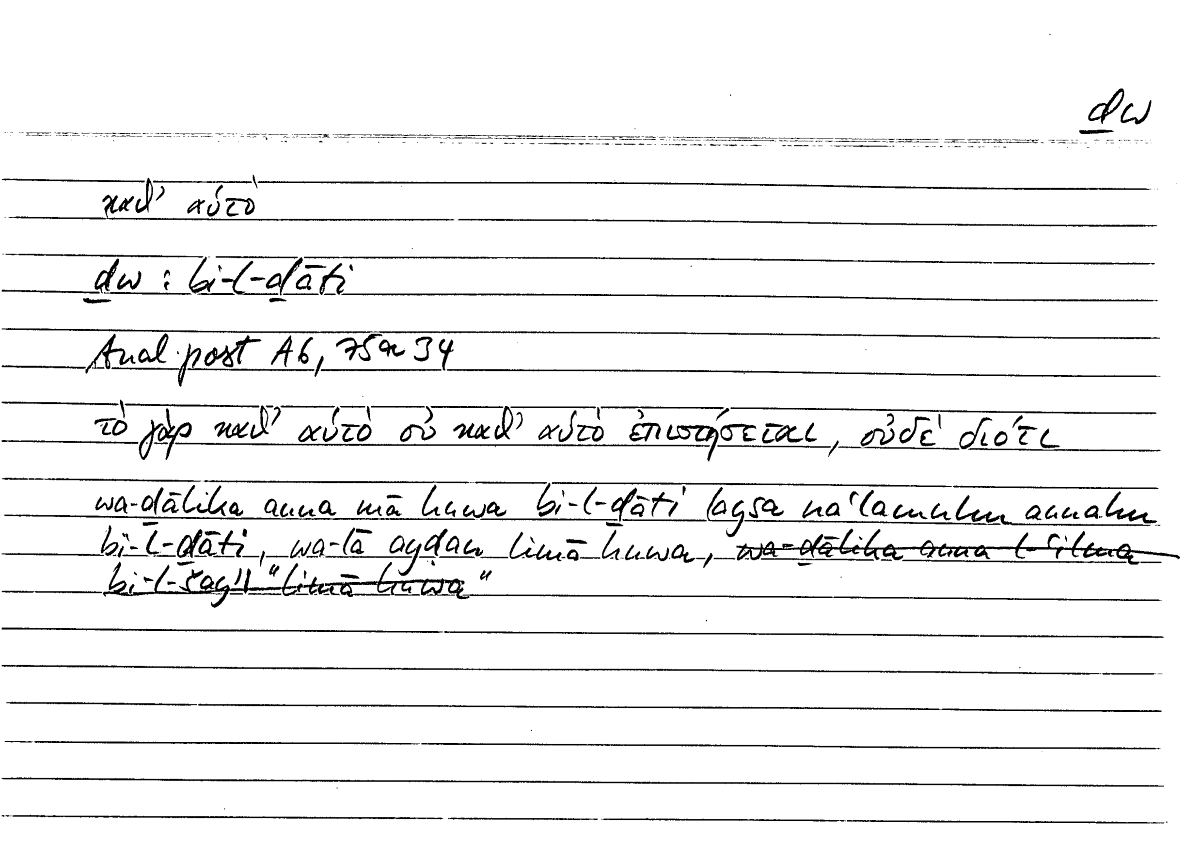 ḏw
καθ’ αὑτὸ
ḏw : bi-l-ḏāti
Anal. post A6, 75a 34
τὸ γὰρ καθ’ αὑτὸ οὐ καθ’ αὑτὸ ἐπιστήσεται, οὐδὲ διότι
wa-ḏālika anna mā huwa bi-l-ḏāti laysa na‘lamuhu annahu
bi-l-ḏāti, wa-lā ayḍan limā huwa, wa-ḏālika anna l-‘ilma
bi-l-šay’i “limā huwa”